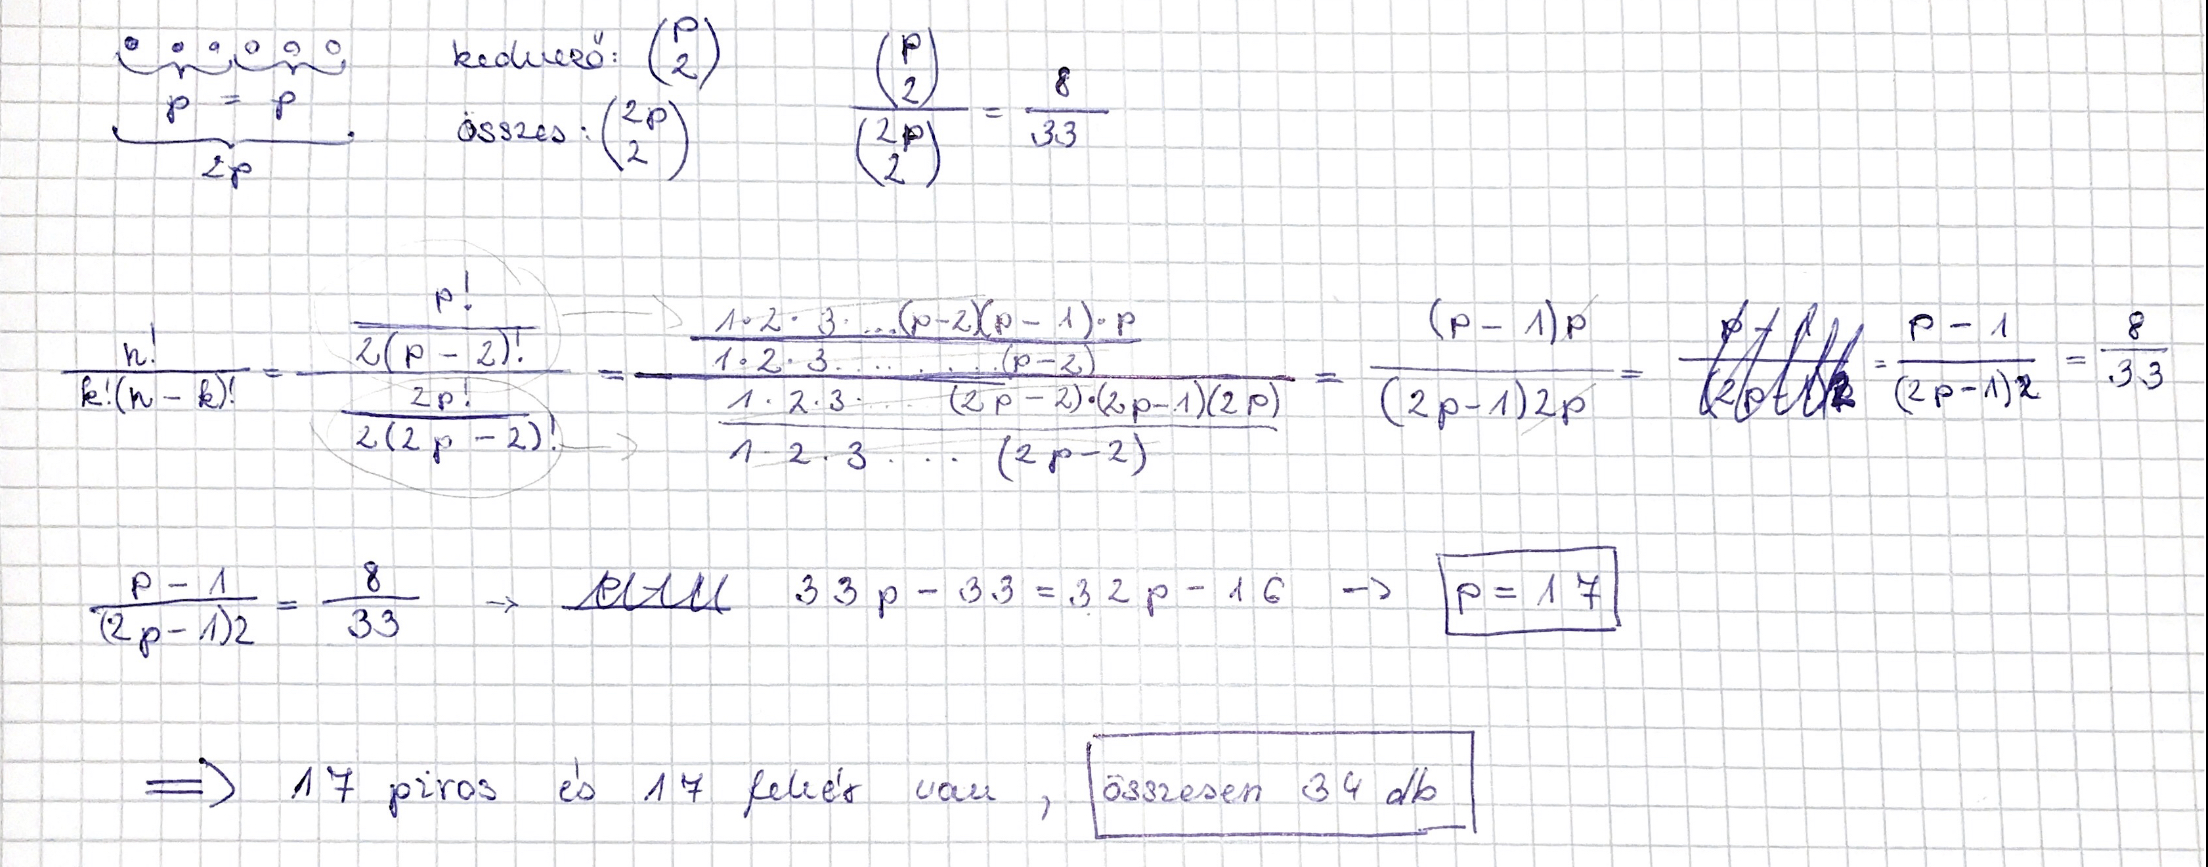 p = p
2p
kedvező: (p 2)
összes: (2p 2)
(p 2) / (2p 2) = 8/33
n! / k!(n - k)! = (p! / 2(p - 2)!) / (2p! / 2(2p - 2)!) = (1·2·3·...(p-2)(p-1)·p / 1·2·3......(p-2)) / (1·2·3···· (2p-2)·(2p-1)(2p) / 1·2·3···· (2p-2)) = (p-1)p / (2p-1)2p = = p-1 / (2p-1)2 = 8/33
p-1 / (2p-1)2 = 8/33 → 33p - 33 = 32p - 16 → p = 17
⇒ 17 piros és 17 fehér van, összesen 34 db